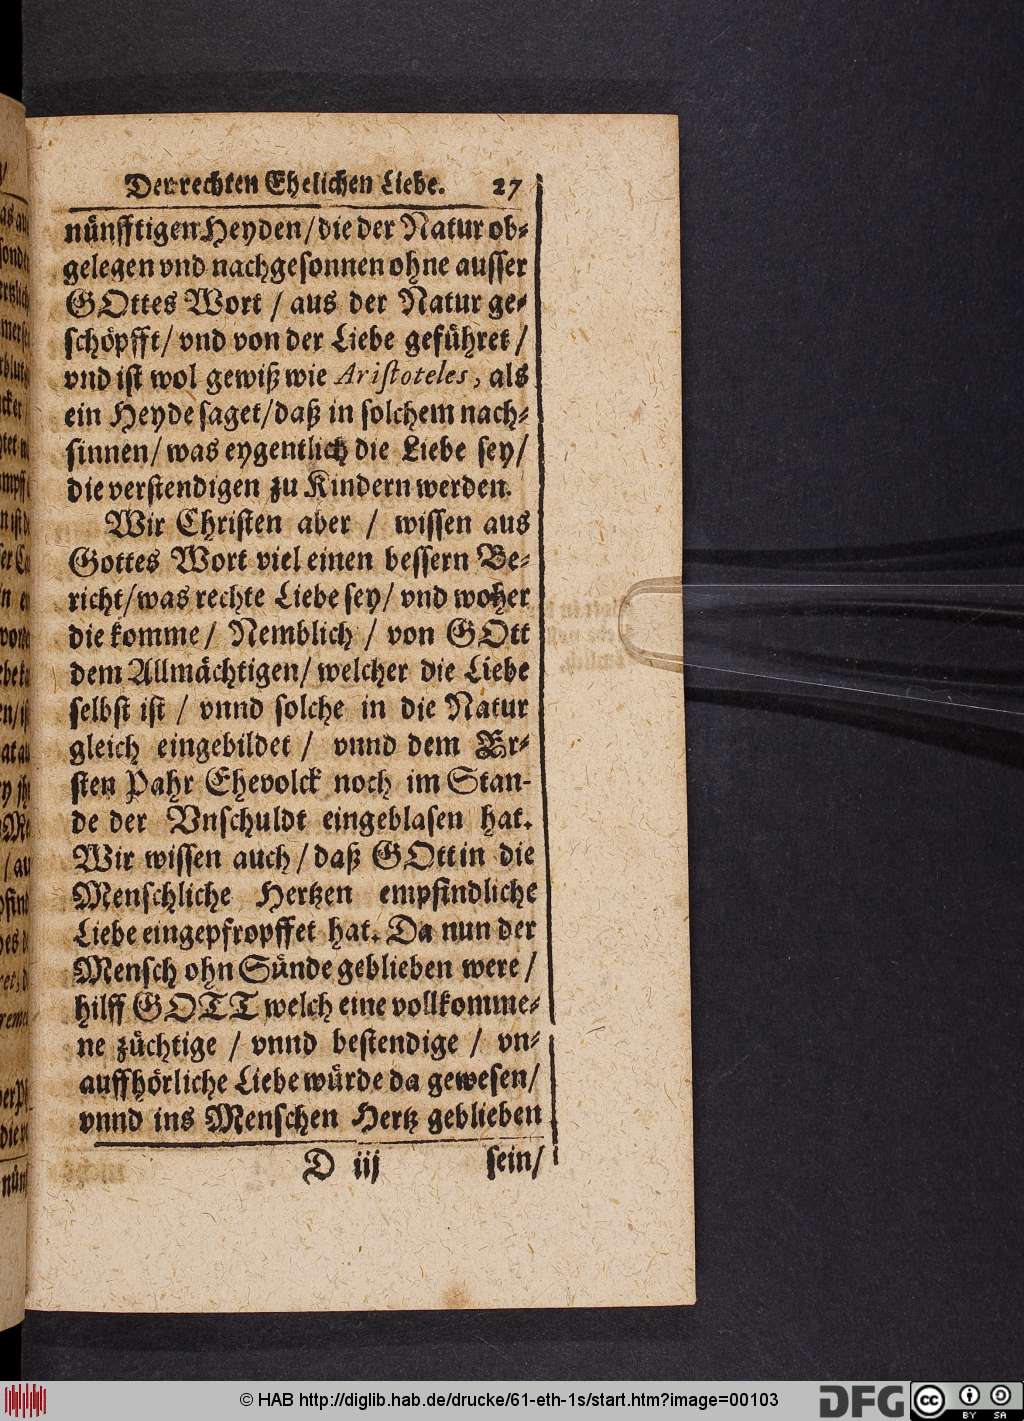 Der rechten Ehelichen Liebe. 27
nünfftigen Heyden/die der Natur ob-
gelegen vnd nachgesonnen ohne ausser
GOttes Wort / aus der Natur ge-
schöpfft/ vnd von der Liebe geführet /
vnd ist wol gewiß wie Aristoteles, als
ein Heyde saget/daß in solchem nach-
sinnen/ was eygentlich die Liebe sey/
die verstendigen zu Kindern werden.
Wir Christen aber / wissen aus
Gottes Wort viel einen bessern Be-
richt/was rechte Liebe sey/ vnd woher
die komme/ Nemblich / von GOtt
dem Allmächtigen/ welcher die Liebe
selbst ist / vnnd solche in die Natur
gleich eingebildet / vnnd dem Er-
sten Pahr Ehevolck noch im Stan-
de der Vnschuldt eingeblasen hat.
Wir wissen auch/daß GOtt in die
Menschliche Hertzen empfindliche
Liebe eingepfropffet hat. Da nun der
Mensch ohn Sünde geblieben were /
hilff GOTT welch eine vollkomme-
ne züchtige / vnnd bestendige / vn-
auffhörliche Liebe würde da gewesen/
vnnd ins Menschen Hertz geblieben
D iij sein/
© HAB http://diglib.hab.de/drucke/61-eth-1s/start.htm?image=00103
DFG
cc BY SA